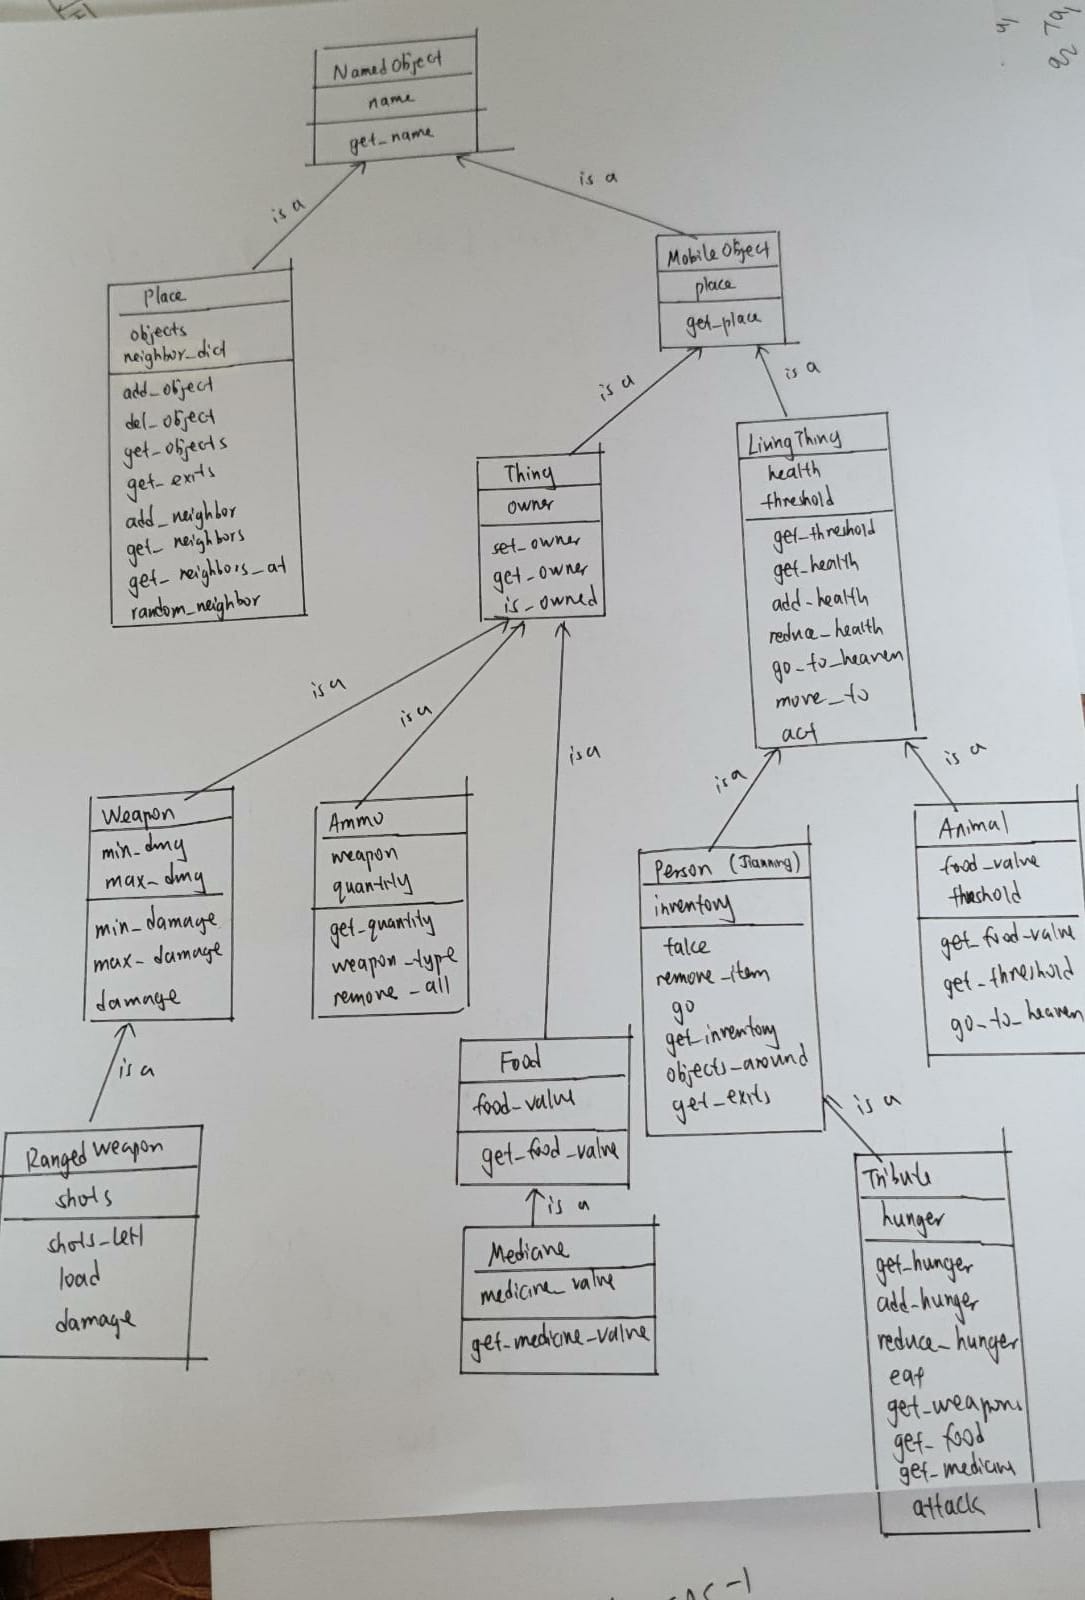 NamedObject
name
get_name
is a
is a
Place
objects
neighbor_dict
add_object
del_object
get_objects
get_exits
add_neighbor
get_neighbors
get_neighbors_at
random_neighbor
MobileObject
place
get_place
is a
is a
Thing
owner
set_owner
get_owner
is_owned
LivingThing
health
threshold
get_threshold
get_health
add_health
reduce_health
go_to_heaven
move_to
act
is a
is a
is a
is a
is a
Weapon
min_dmg
max_dmg
min_damage
max_damage
damage
Ammo
weapon
quantity
get_quantity
weapon_type
remove_all
Person
inventory
take
remove_item
go
get_inventory
objects_around
get_exits
Animal
food_value
threshold
get_food_value
get_threshold
go_to_heaven
is a
Food
food_value
get_food_value
is a
is a
Ranged Weapon
shots
shots_left
load
damage
Medicine
medicine_value
get_medicine_value
Tribute
hunger
get_hunger
add_hunger
reduce_hunger
eat
get_weapons
get_food
get_medicine
attack